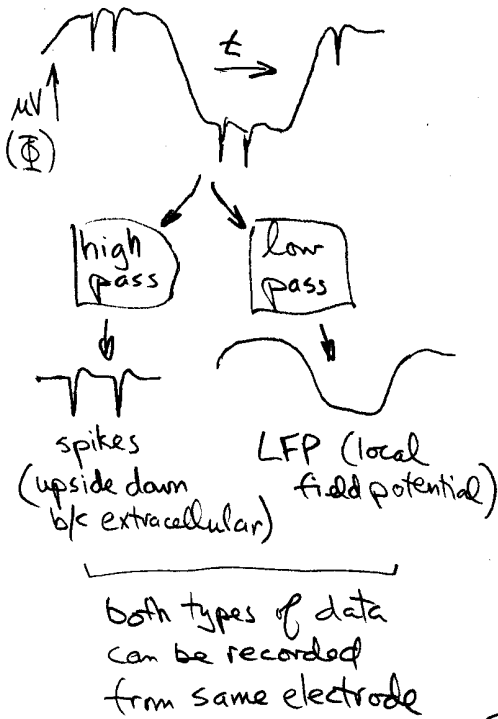 t
μV
(Φ)
high
pass
low
pass
spikes
(upside down
b/c extracellular)
LFP (local
field potential)
both types of data
can be recorded
from same electrode